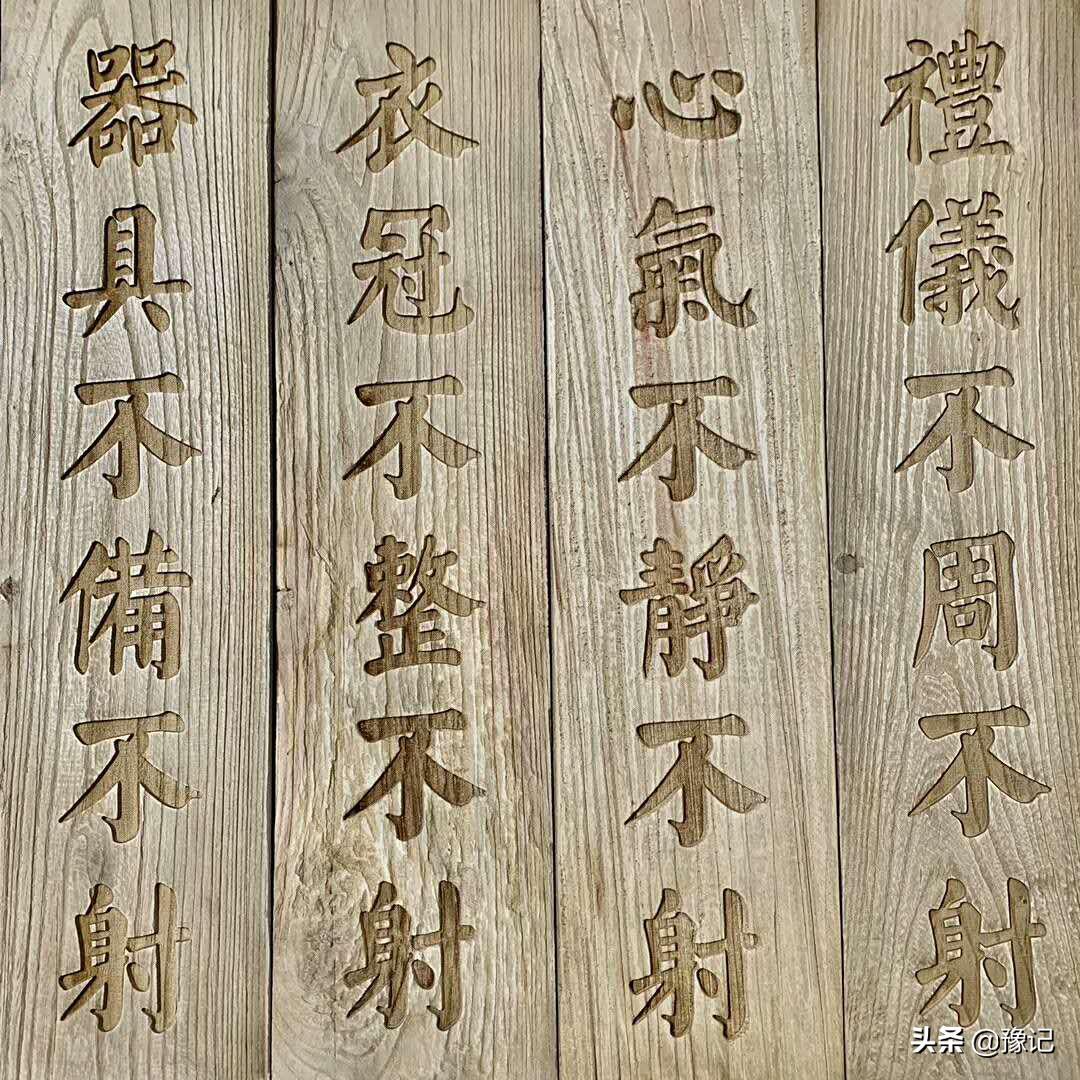 禮儀不周不射
心氣不靜不射
衣冠不整不射
器具不備不射
头条 @豫记